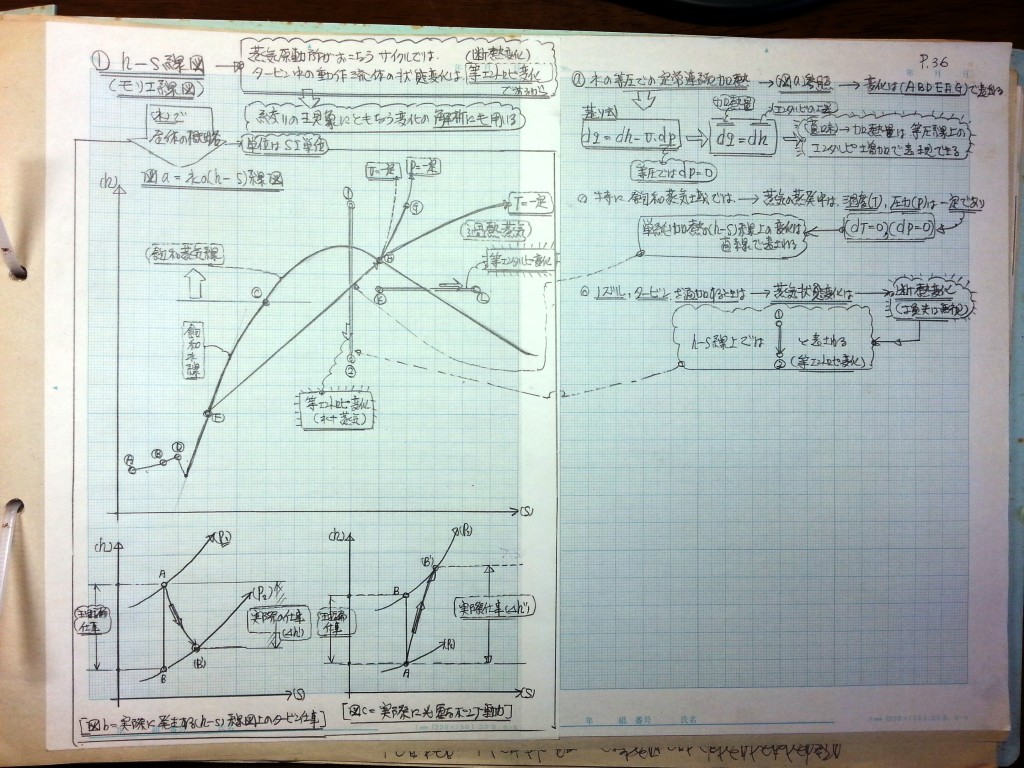 ① h-s線図
(モリエ線図)
蒸気原動所がおこなうサイクルでは、(断熱変化)
タービン内の動作流体の状態変化は、等エントロピ変化
であるから
絞りの現象にともなう変化の解析にも用いる
単位はSI単位
図a=水の(h-s)線図
(h)
飽和蒸気線
飽和水線
v=一定
P=一定
T=一定
過熱蒸気
等エンタルピ変化
等エントロピ変化
(水+蒸気)
A
B
D
E
C
①
②
(S)
(h)
(P₁)
A
(P₂)
理論仕事
実際の仕事
(Δh')
B
(B')
(S)
[図b=実際に発生する(h-s)線図上のタービン仕事]
(h)
(P₂)
(B')
B
理論仕事
実際仕事(Δh')
(P₁)
A
(S)
[図c=実際に必要なポンプ動力]
P.36
水の等圧での定常連続加熱→図a参照→変化は(ABDEFG)で表される
加熱量
dq=dh-v.dp
dq=dh
(意味)→加熱量は、等圧線上の
エンタルピ増加で表現できる
等圧ではdp=0
特に、飽和蒸気域では→蒸気の蒸発中は、温度(T)、圧力(P)は一定であり
(dT=0)(dP=0)
(h-s)線上の変化は
直線で表される
ノズル、タービン、を通分するときは→蒸気状態変化は
断熱変化
h-s線上では
①
②
と表される
(等エントロピ変化)
年 組 番号 氏名